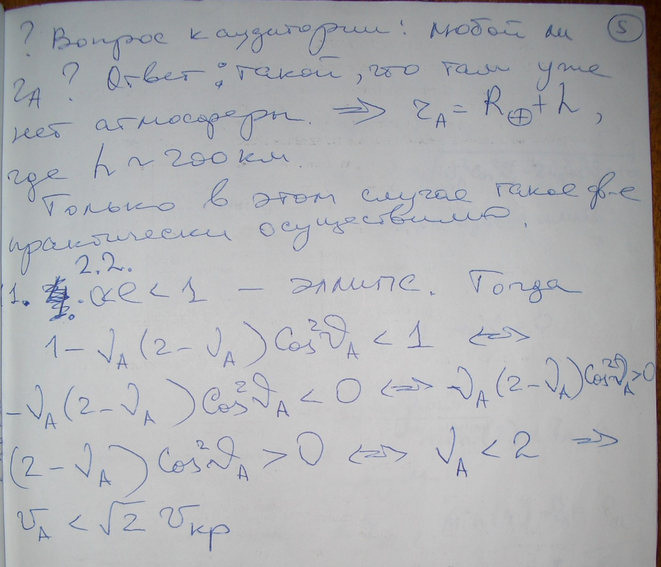 ? Вопрос к аудитории: любой ли 5
r_A? Ответ: такой, что там уже
нет атмосферы. ⇒ r_A = R_⊕ + h,
где h ~ 200 км.
Только в этом случае такое дв-е
практически осуществимо.
2.2.
1. 0 < e < 1 – эллипс. Тогда
1 - ν_A (2 - ν_A) Cos²ϑ_A < 1 ⇔
-ν_A (2 - ν_A) Cos²ϑ_A < 0 ⇔ ν_A (2 - ν_A) Cos²ϑ_A > 0
(2 - ν_A) Cos²ϑ_A > 0 ⇔ ν_A < 2 ⇒
v_A < √2 v_кр